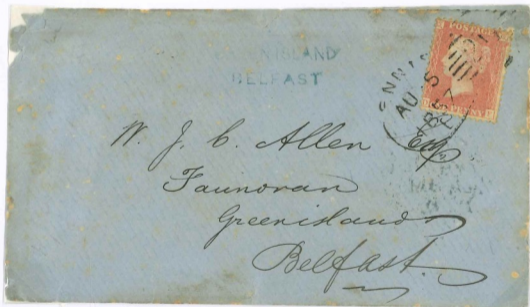 POSTAGE
ISLAND
BELFAST
AU 5
W. J. C. Allen Esq
Faunoran
Greenisland
Belfast.